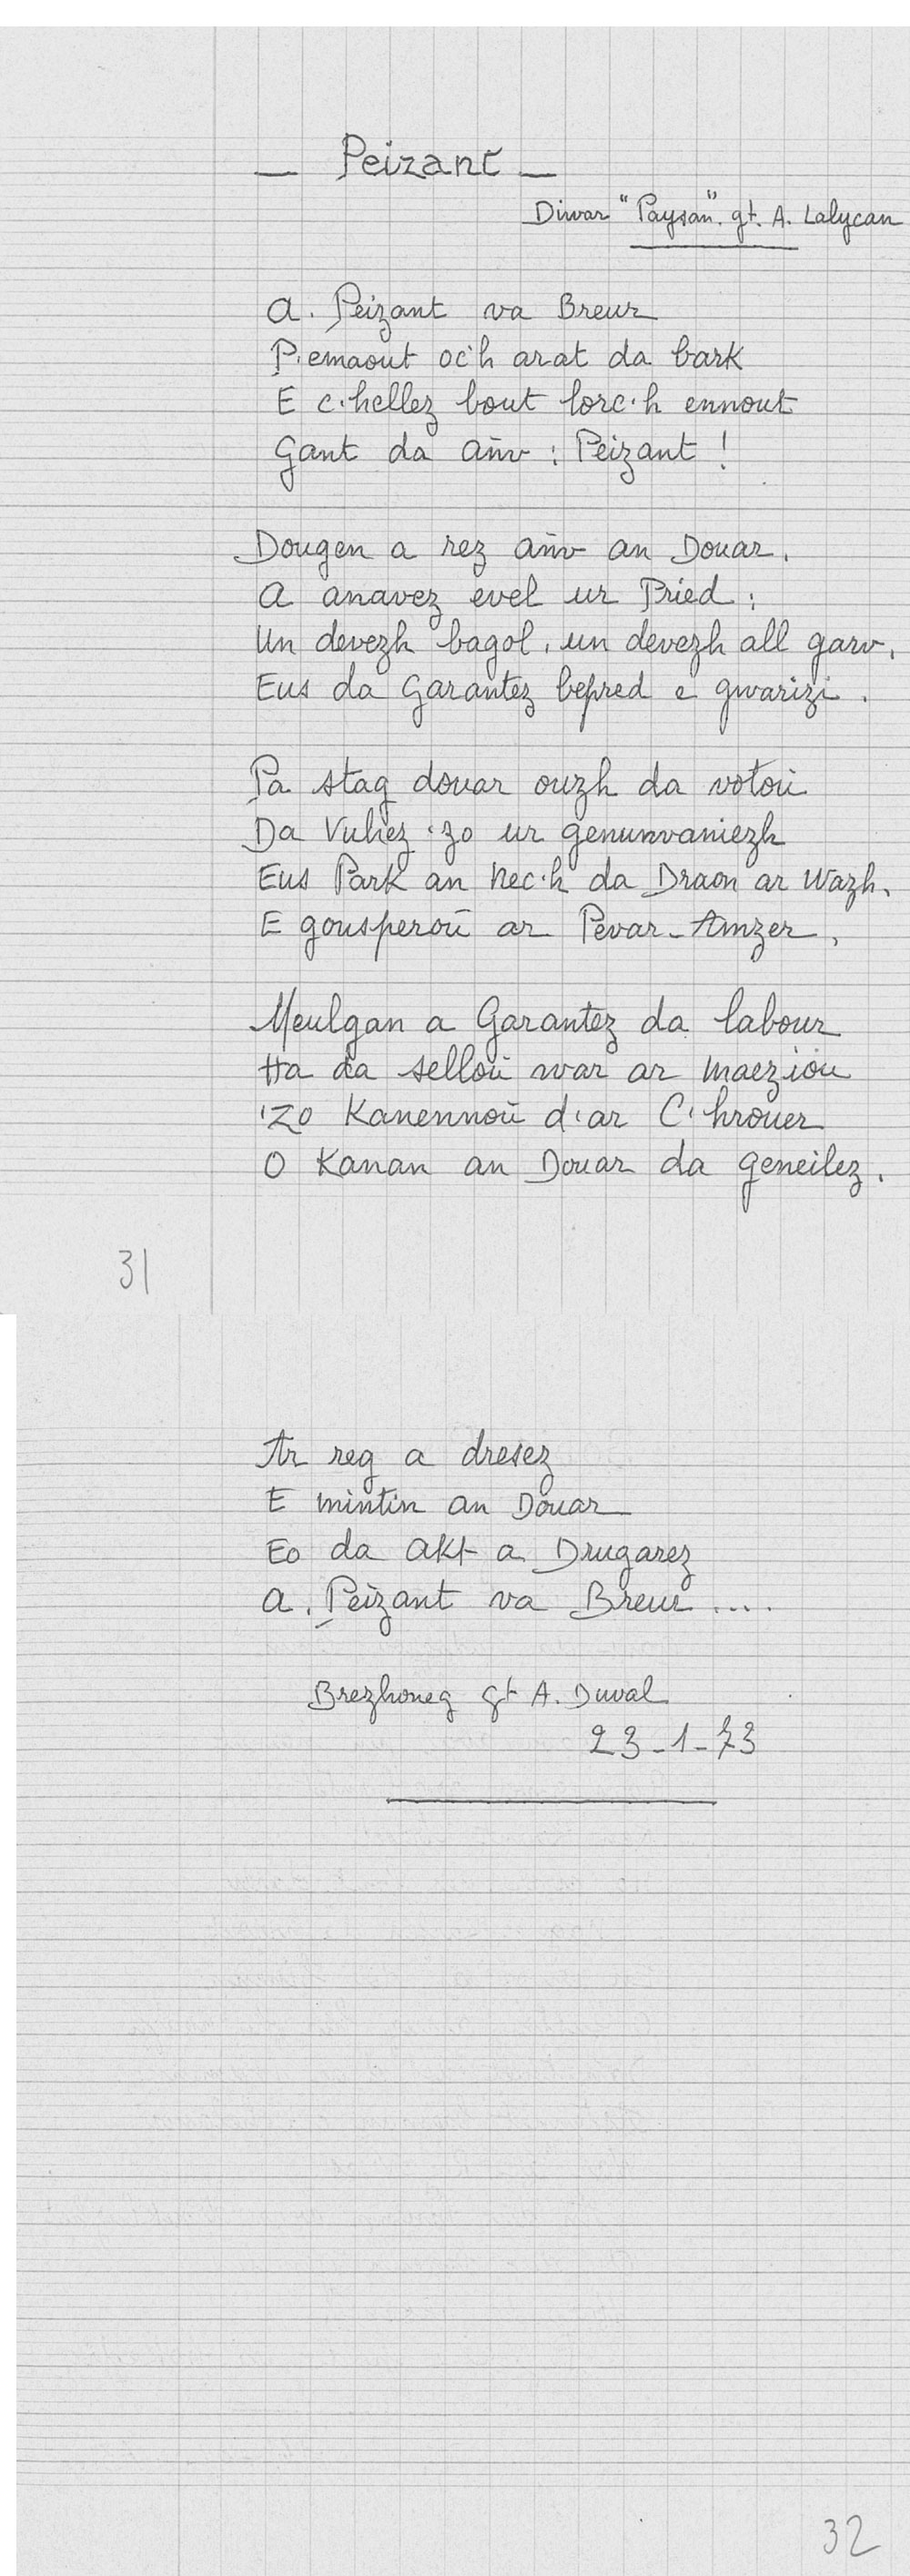 _ Peizant _
Diwar "Paysan". gt. A. Lalycan
A. Peizant va Breur
P.emaout oc'h arat da bark
E c'hellez bout lorc'h ennout
Gant da añv : Peizant !
Dougen a rez añv an Douar.
A anavez evel ur Pried :
Un devezh bagol, un devezh all garv,
Eus da Garantez bepred e gwarizi.
Pa stag douar ouzh da votoù
Da Vuhez 'zo ur genunvaniezh
Eus Park an Nec'h da Draon ar Wazh,
E gousperoù ar Pevar-Amzer,
Meulgan a Garantez da labour
Ha da selloù war ar maezioù
'Zo Kanennoù d'ar C'hrouer
O Kanan an Douar da geneilez.
31
Ar reg a dresez
E mintin an Douar
Eo da akt a Drugarez
A. Peizant va Breur ....
Brezhoneg gt A. Duval
23-1-73
32